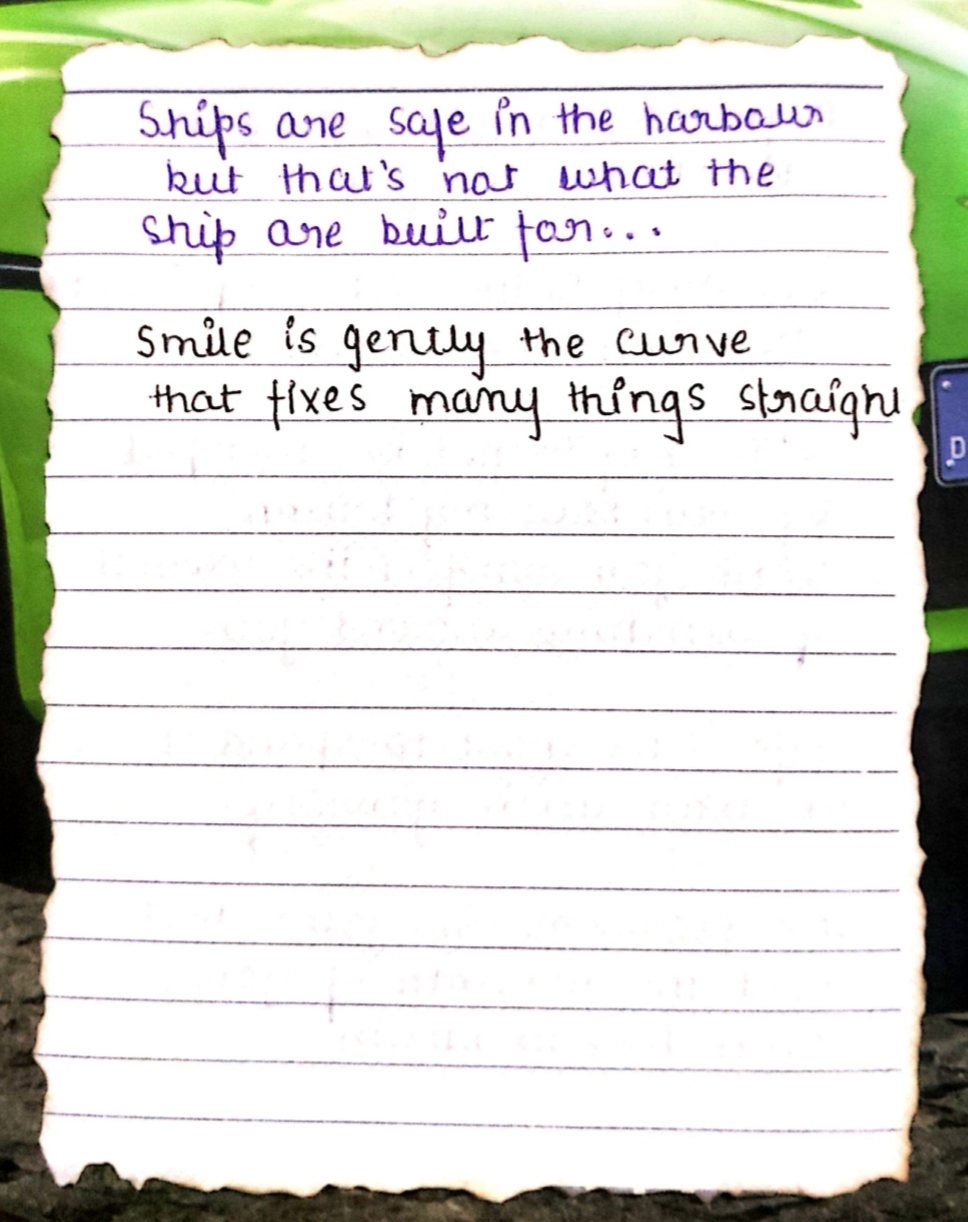 Ships are safe in the harbour
but that's not what the
ship are built for...
Smile is gently the curve
that fixes many things straight
D